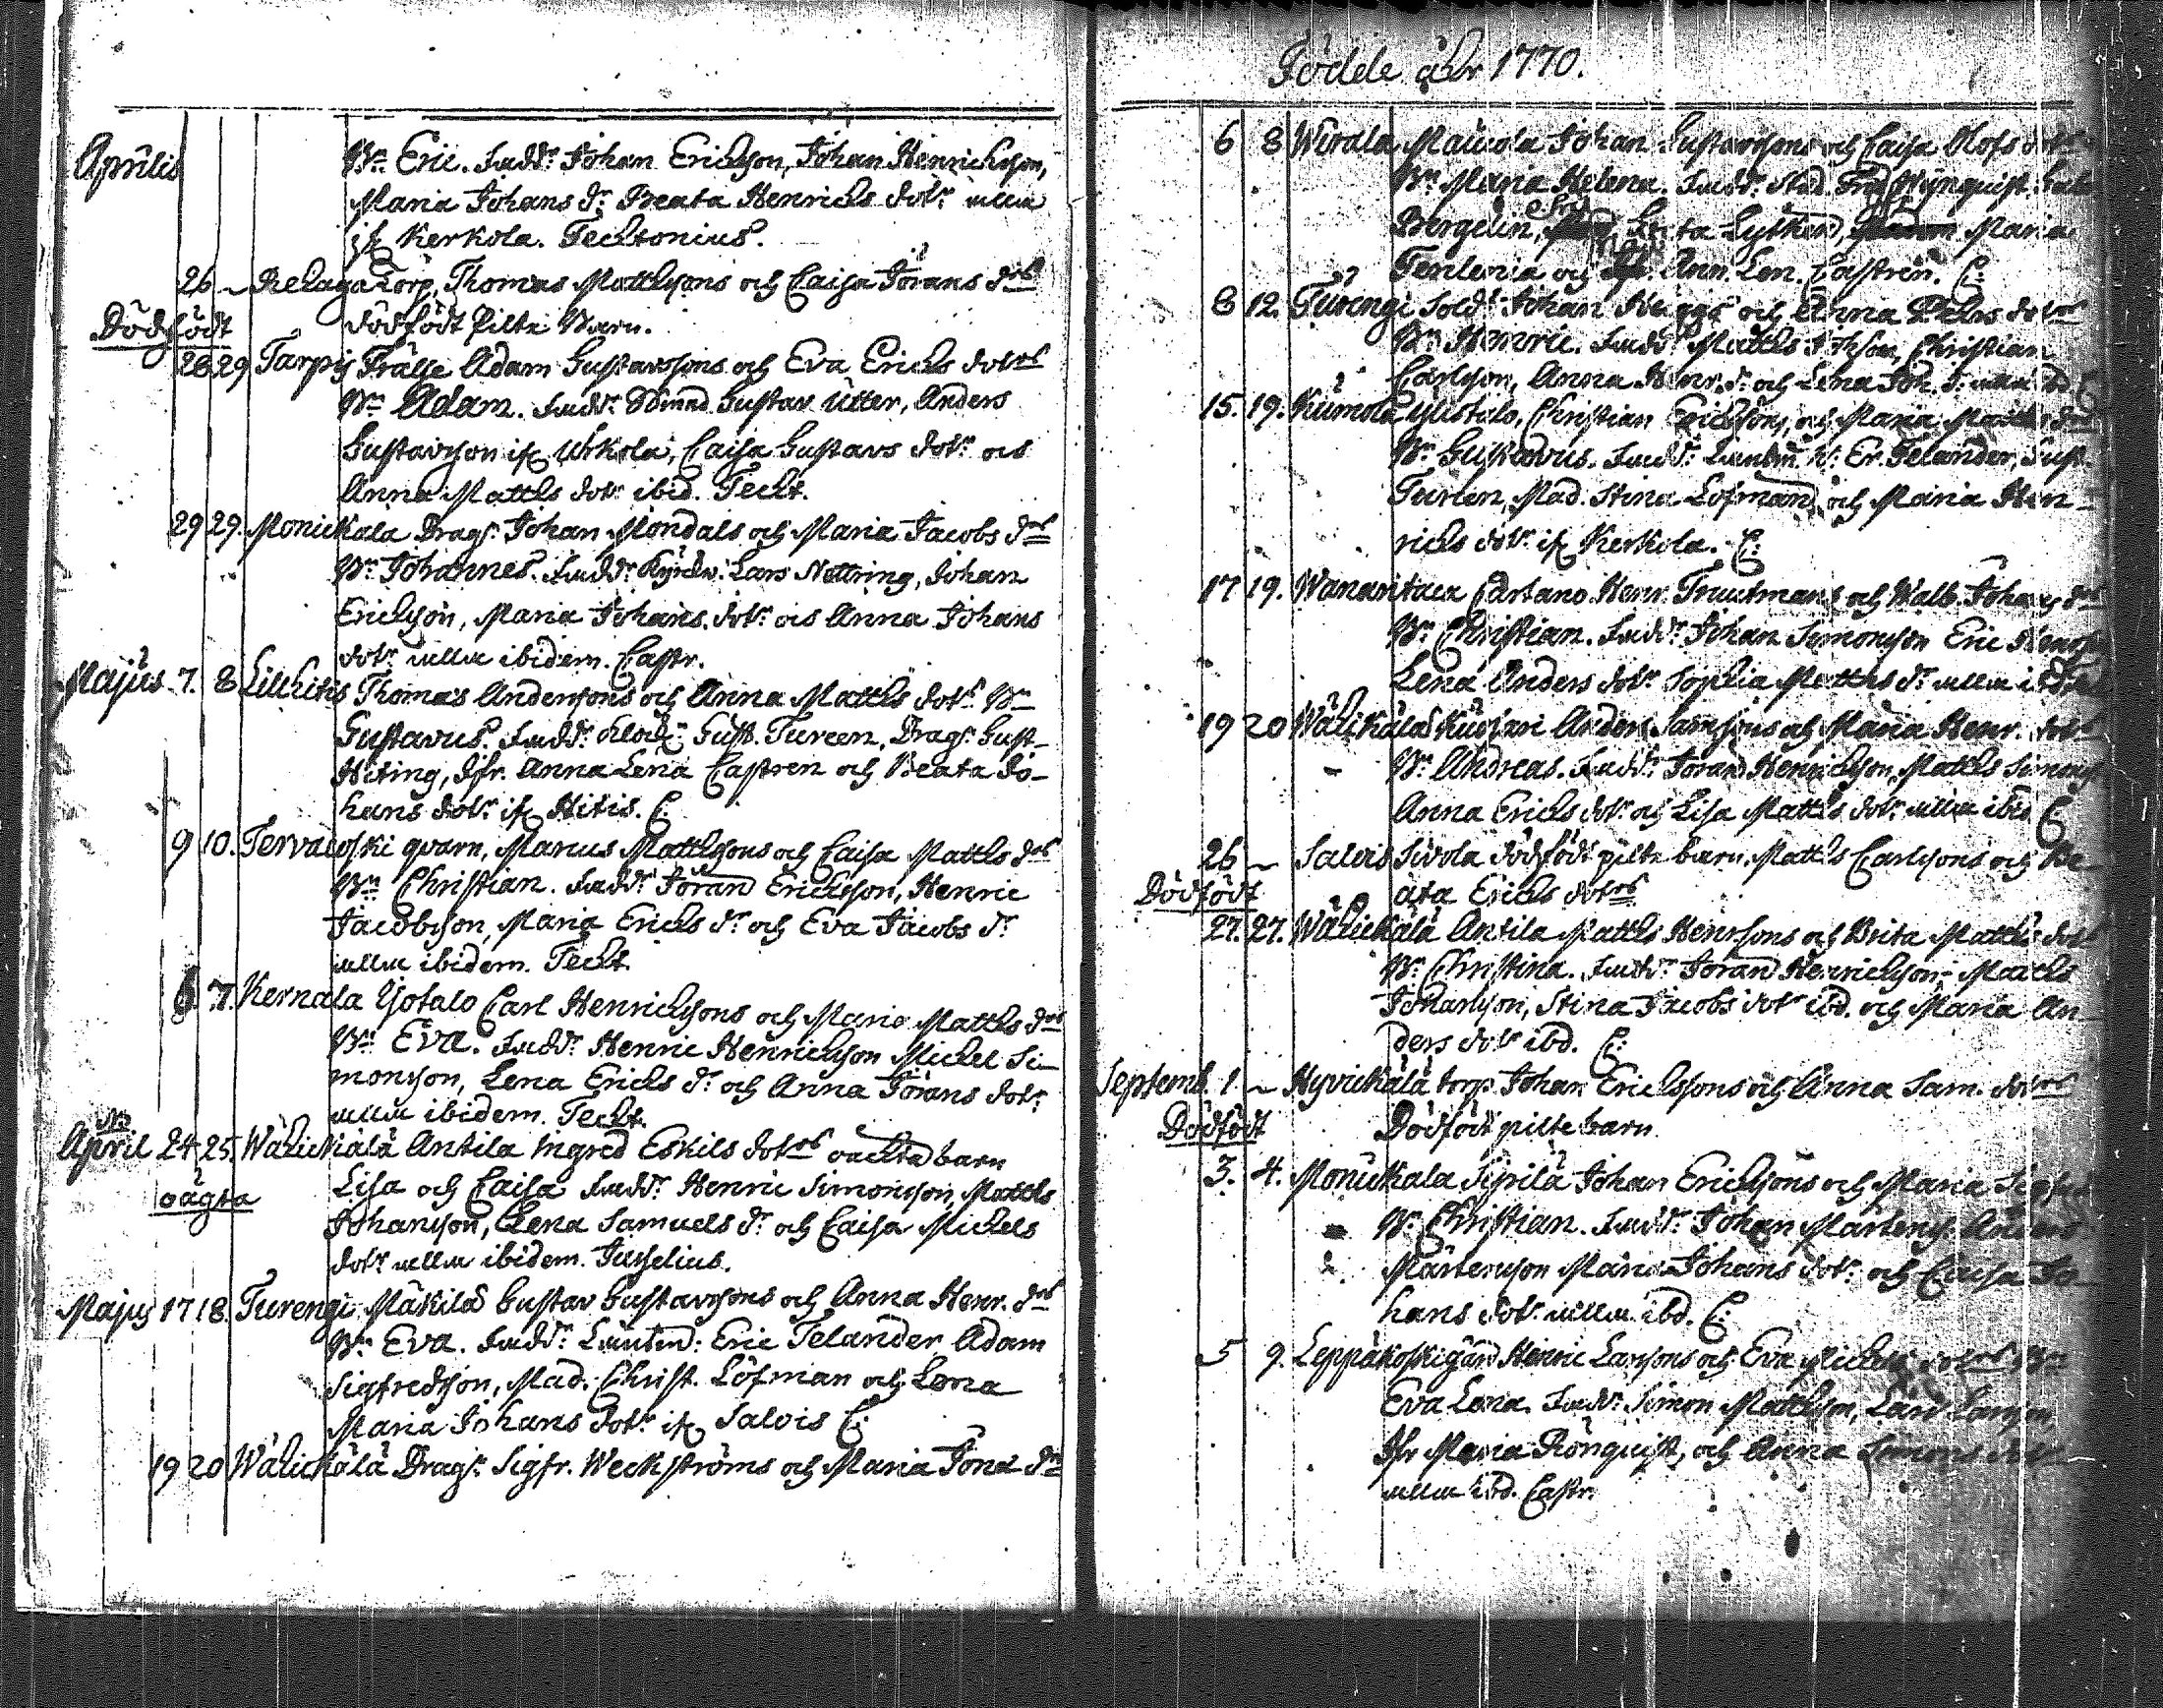 Aprilis
Bn Eric. Fadd:r Johan Ericsson, Johan Henrichsson,
Maria Johans d:r Beata Henrichs dotr alla
if Kerkola. Techtonius.
26 ~ Rehaga torp, Thomas Matthsons och Caisa Jörans d:rs
Dödfödt
dödfödt Pilte Barn.
28 29 Tarpis Frälse Adam Gustavssons och Eva Erichs dotrs
Bn Adam. Fadd:r Gustav Utter, Anders
Gustavsson if Urkola, Caisa Gustavs dotr ocs
Anna Matths dotr ibid. Techt.
29 29. Monickala Drag:r Johan Mondals och Maria Jacobs d:rs
Bn Johannes. Fadd:r Lars Nettring, Johan
Ericsson, Maria Johans dotr ocs Anna Johans
dotr alla ibidem. Castr.
Majus 7. 8 Lillhitis Thomas Andersons och Anna Matths dotrs Bn
Gustavus. Fadd:r Klock:n Gust. Tureen, Drag:r Gust.
Hiting, Jfr. Anna Lena Castren och Beata Jo-
hans dotr if Hitis. C:
9 10. Tervakoski qvarn, Marcus Matthssons och Caisa Matths d:rs
Bn Christian. Fadd:r Jöran Ericsson, Henric
Jacobsson, Maria Erichs d:r och Eva Jacobs d:r
alla ibidem. Techt.
6 7. Kernala Yotalo Carl Henrichsons och Maria Matths d:rs
Bn Eva. Fadd:r Henric Henrichson Michel Si-
monsson, Lena Erichs d:r och Anna Jörans dotr
alla ibidem. Techt.
April 24 25. Wähickälä Antila Ingred Eskils dotrs oächta barn
oägta
Lisa och Caisa Fadd:r Henric Simonsson, Matths
Johansson, Lena Samuels d:r och Caisa Michels
dotr alla ibidem. Juselius.
Majus 17 18. Turengi Mäkilä Gustav Gustavssons och Anna Henr. d:rs
Bn Eva. Fadd:r Eric Telander Adam
Sigfredsson, Mad. Christ. Löfman och Lena
Maria Johans dotr if Salvis C:
19 20 Wähickälä Drag:r Sigfr. Weckströms och Maria Jöns d:rs
Födde åhr 1770.
6 8 Wirala Maucola Johan Gustavssons och Caisa Olofs dotrs
Bn Maria Helena. Fadd:r Stud. Fred.
Bergelin, Maria
och Ann. Len. Castren. C:
8 12. Turengi Sold:r Johan och Anna dotrs
Bn Henric. Fadd:r Matths Johsson, Christian
Carlsson, Anna Henr. d:r och Lena Joh. d:r alla ibd
15. 19. Kumola Ylistalo, Christian Ericssons och Maria Matths d:rs
Bn Gustavus. Fadd:r Er. Telander, Gust.
Turlen, Mad. Stina Lofman, och Maria Hen-
richs dotr if Kerkola. C:
17 19. Wanantaca Cartano Henr. Truutmans och Walb. Johans d:rs
Bn Christian. Fadd:r Johan Simonsson Eric
Lena Anders dotr Sophia Matths d:r alla ibd
19 20 Wähikälä Anders Samssons och Maria Henr. dotrs
Bn Andreas. Fadd:r Jöran Henrichson, Matths Simons
Anna Erichs dotr och Lisa Matths dotr alla ibid C
26 ~ Salvis Sivola dödfödt pilte barn, Matths Carlssons och Be-
Dödfödt
ata Erichs dotrs
27. 27. Wähickälä Antila Matths Henrssons och Brita Matths dotrs
Bn Christina. Fadd:r Jöran Henrichsson, Matths
Johansson, Stina Jacobs dotr ibd. och Maria An-
ders dotr ibd. C:
Septemb. 1. ~ Hyvickälä torp Johan Ericssons och Anna Sam. dotrs
Dödfödt
Dödfödt pilte barn
3. 4. Monickala Sipilä Johan Ericssons och Maria
Bn Christian. Fadd:r Johan Mårtens. Anders
Mårtensson Maria Johans dotr och Caisa Jo-
hans dotr alla ibd. C:
5 9. Leppäkoski gård Henric Larssons och Eva Michels dotrs Bn
Eva Lena. Fadd:r Simon Mattsson, Lars Larsson,
Jfr Maria Rönquist, och Anna Simons dotr
alla ibd. Castr.